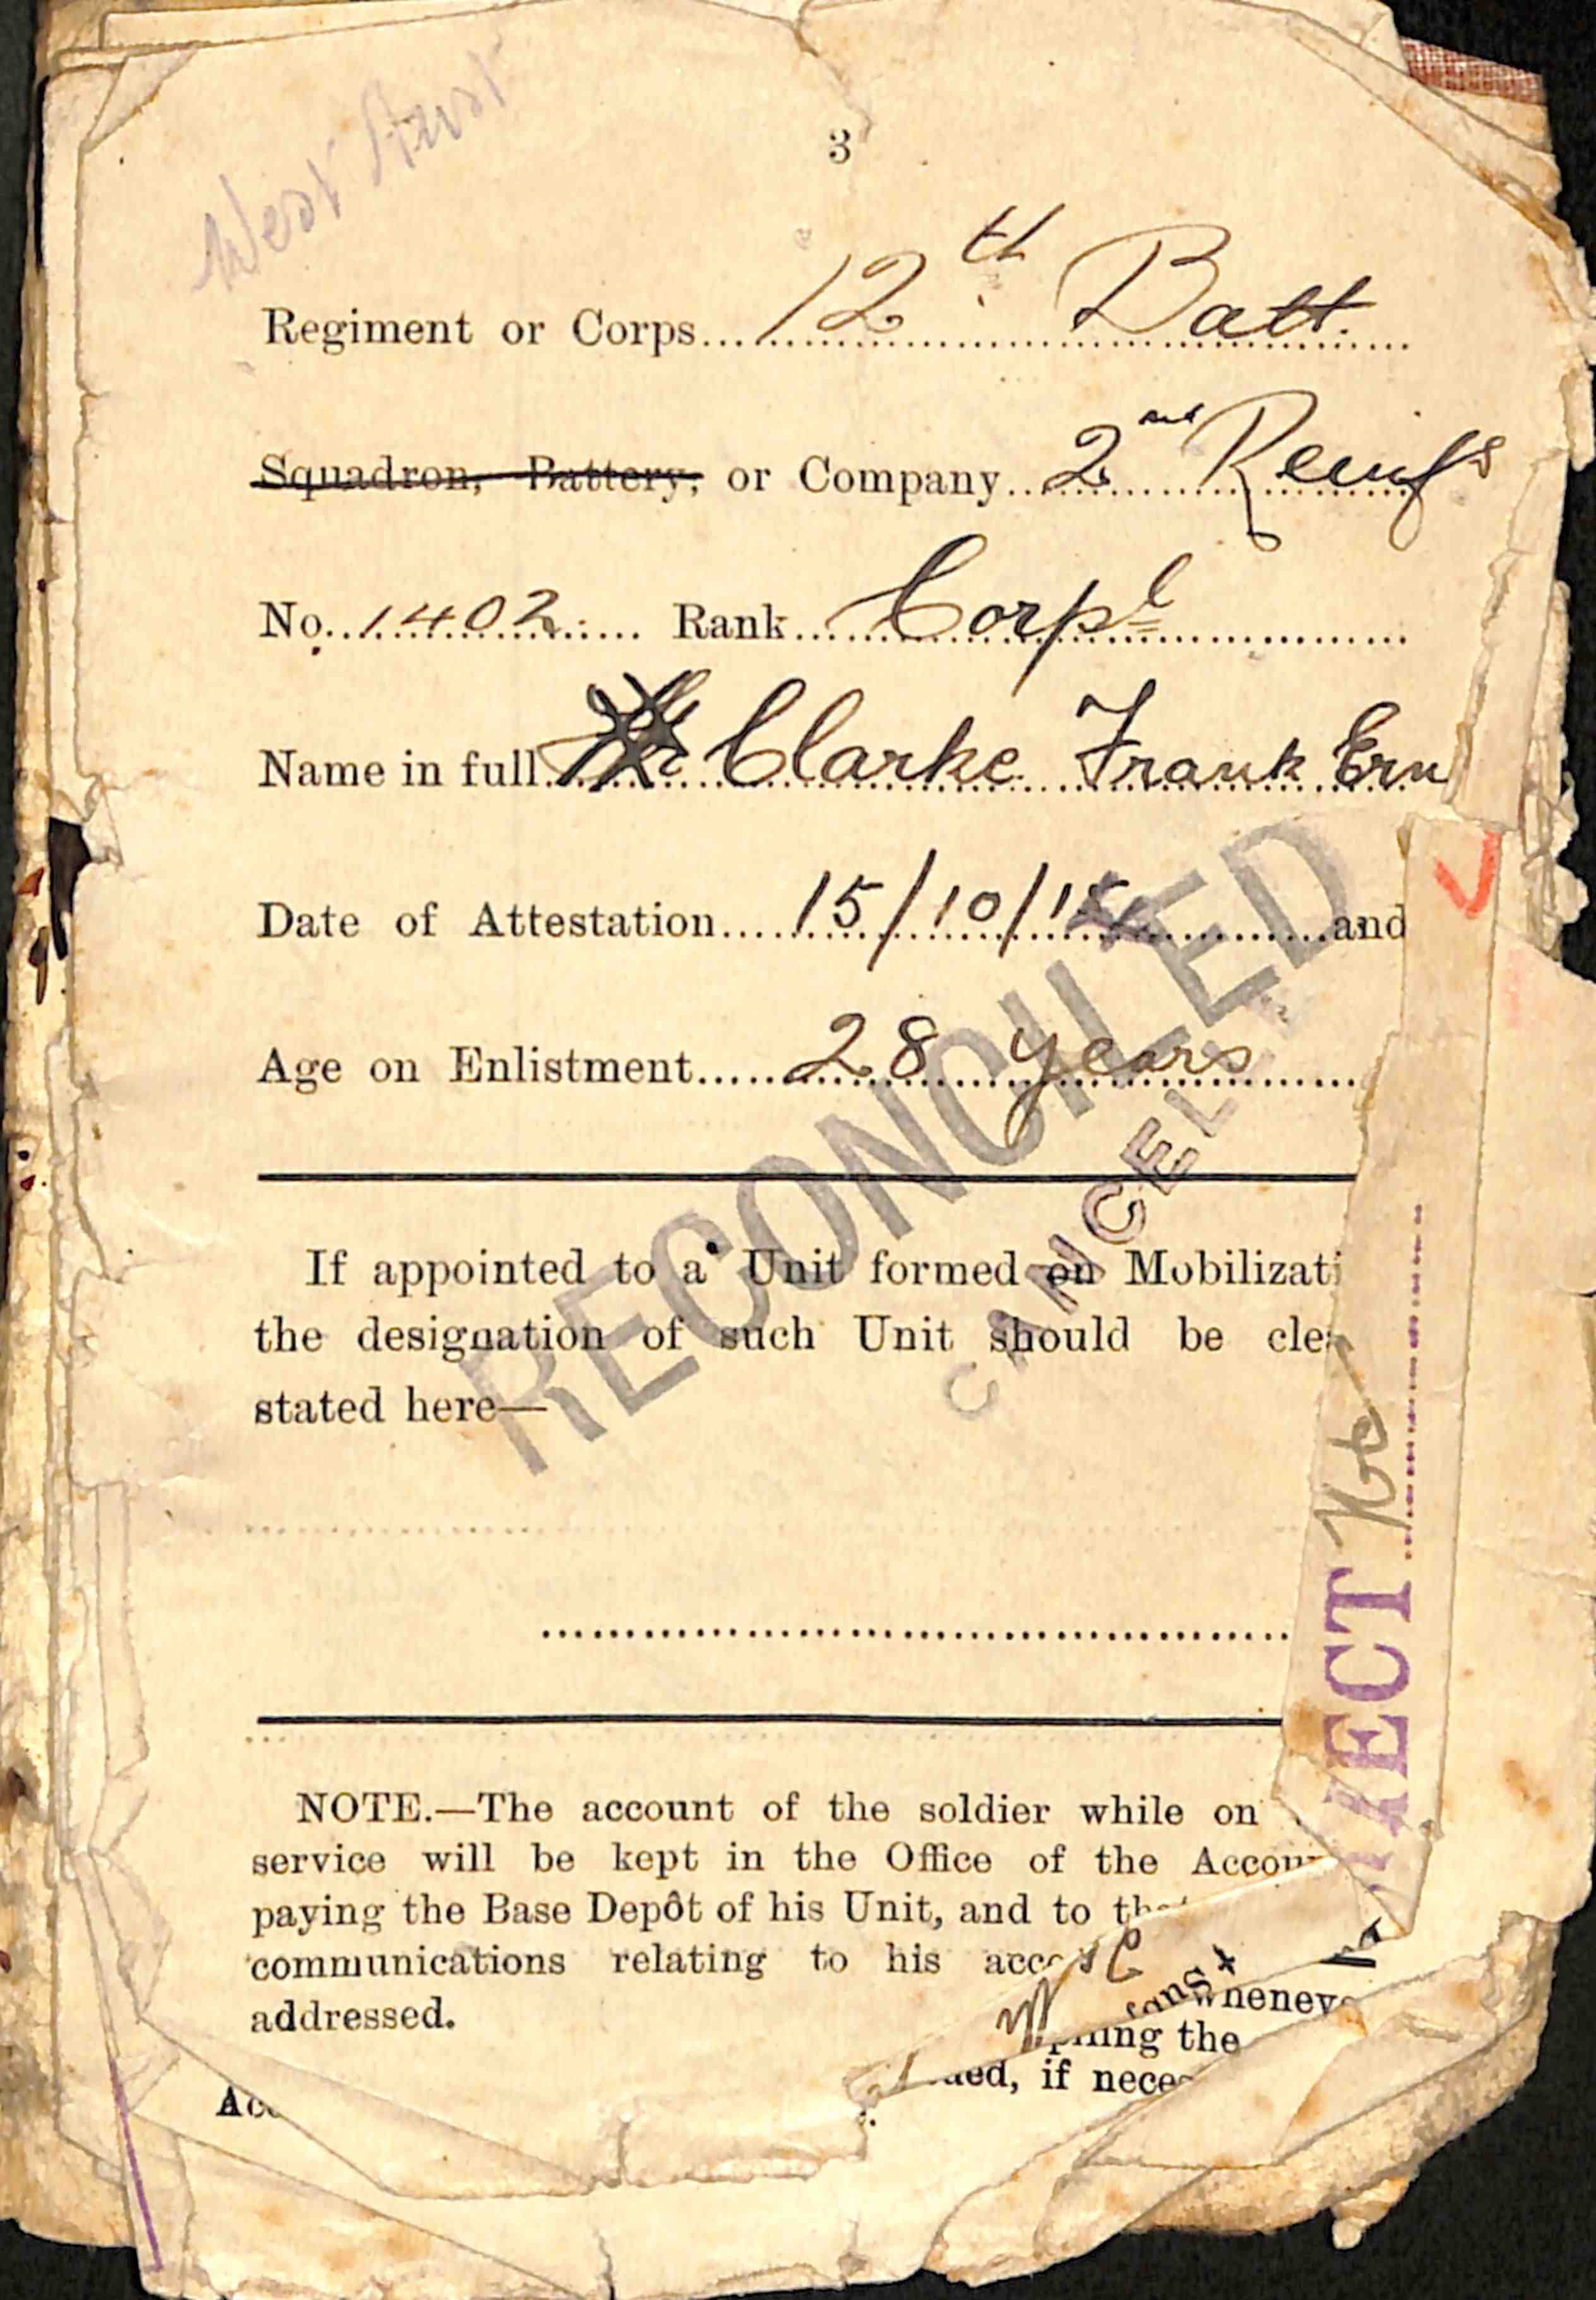 West Aust
3
Regiment or Corps... 12th Batt.
Squadron, Battery, or Company.. 2nd Reinfs
No... 1402... Rank... Corpl
Name in full... Clarke Frank Ern
Date of Attestation.... 15/10/ ...and
Age on Enlistment..... 28 years
RECONCILED
CANCEL
If appointed to a Unit formed on Mobilizati
the designation of such Unit should be clea
stated here—
SECT
NOTE.—The account of the soldier while on
service will be kept in the Office of the Accoun
paying the Base Depôt of his Unit, and to that
communications relating to his acco
addressed.
wheneve
the
if neces
Acc